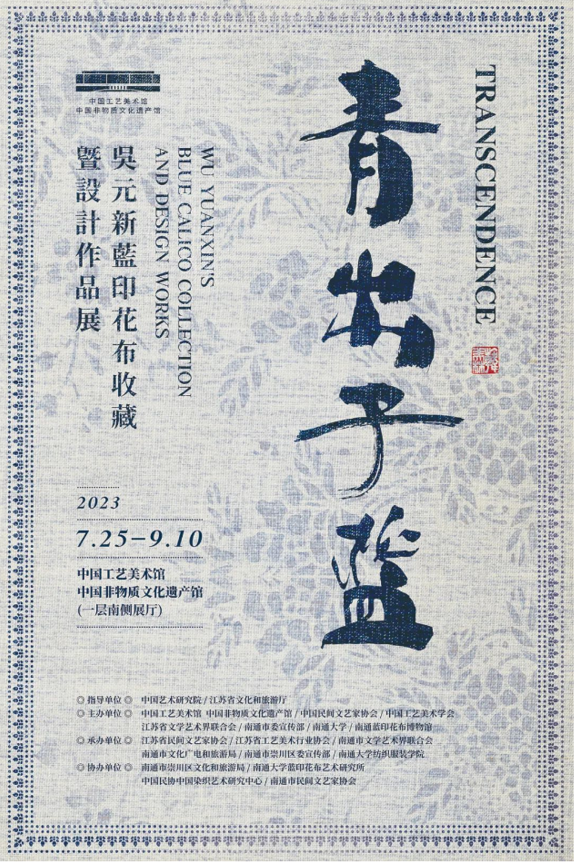 TRANSCENDENCE
青出于蓝
WU YUANXIN'S
BLUE CALICO COLLECTION
AND DESIGN WORKS
吳元新藍印花布收藏
暨設計作品展
中国工艺美术馆
中国非物质文化遗产馆
2023
7.25-9.10
中国工艺美术馆
中国非物质文化遗产馆
(一层南侧展厅)
◎ 指导单位 ◎ 中国艺术研究院 / 江苏省文化和旅游厅
◎ 主办单位 ◎ 中国工艺美术馆 中国非物质文化遗产馆 / 中国民间文艺家协会 / 中国工艺美术学会
江苏省文学艺术界联合会 / 南通市委宣传部 / 南通大学 / 南通蓝印花布博物馆
◎ 承办单位 ◎ 江苏省民间文艺家协会 / 江苏省工艺美术行业协会 / 南通市文学艺术界联合会
南通市文化广电和旅游局 / 南通市崇川区委宣传部 / 南通大学纺织服装学院
◎ 协办单位 ◎ 南通市崇川区文化和旅游局 / 南通大学蓝印花布艺术研究所
中国民协中国染织艺术研究中心 / 南通市民间文艺家协会